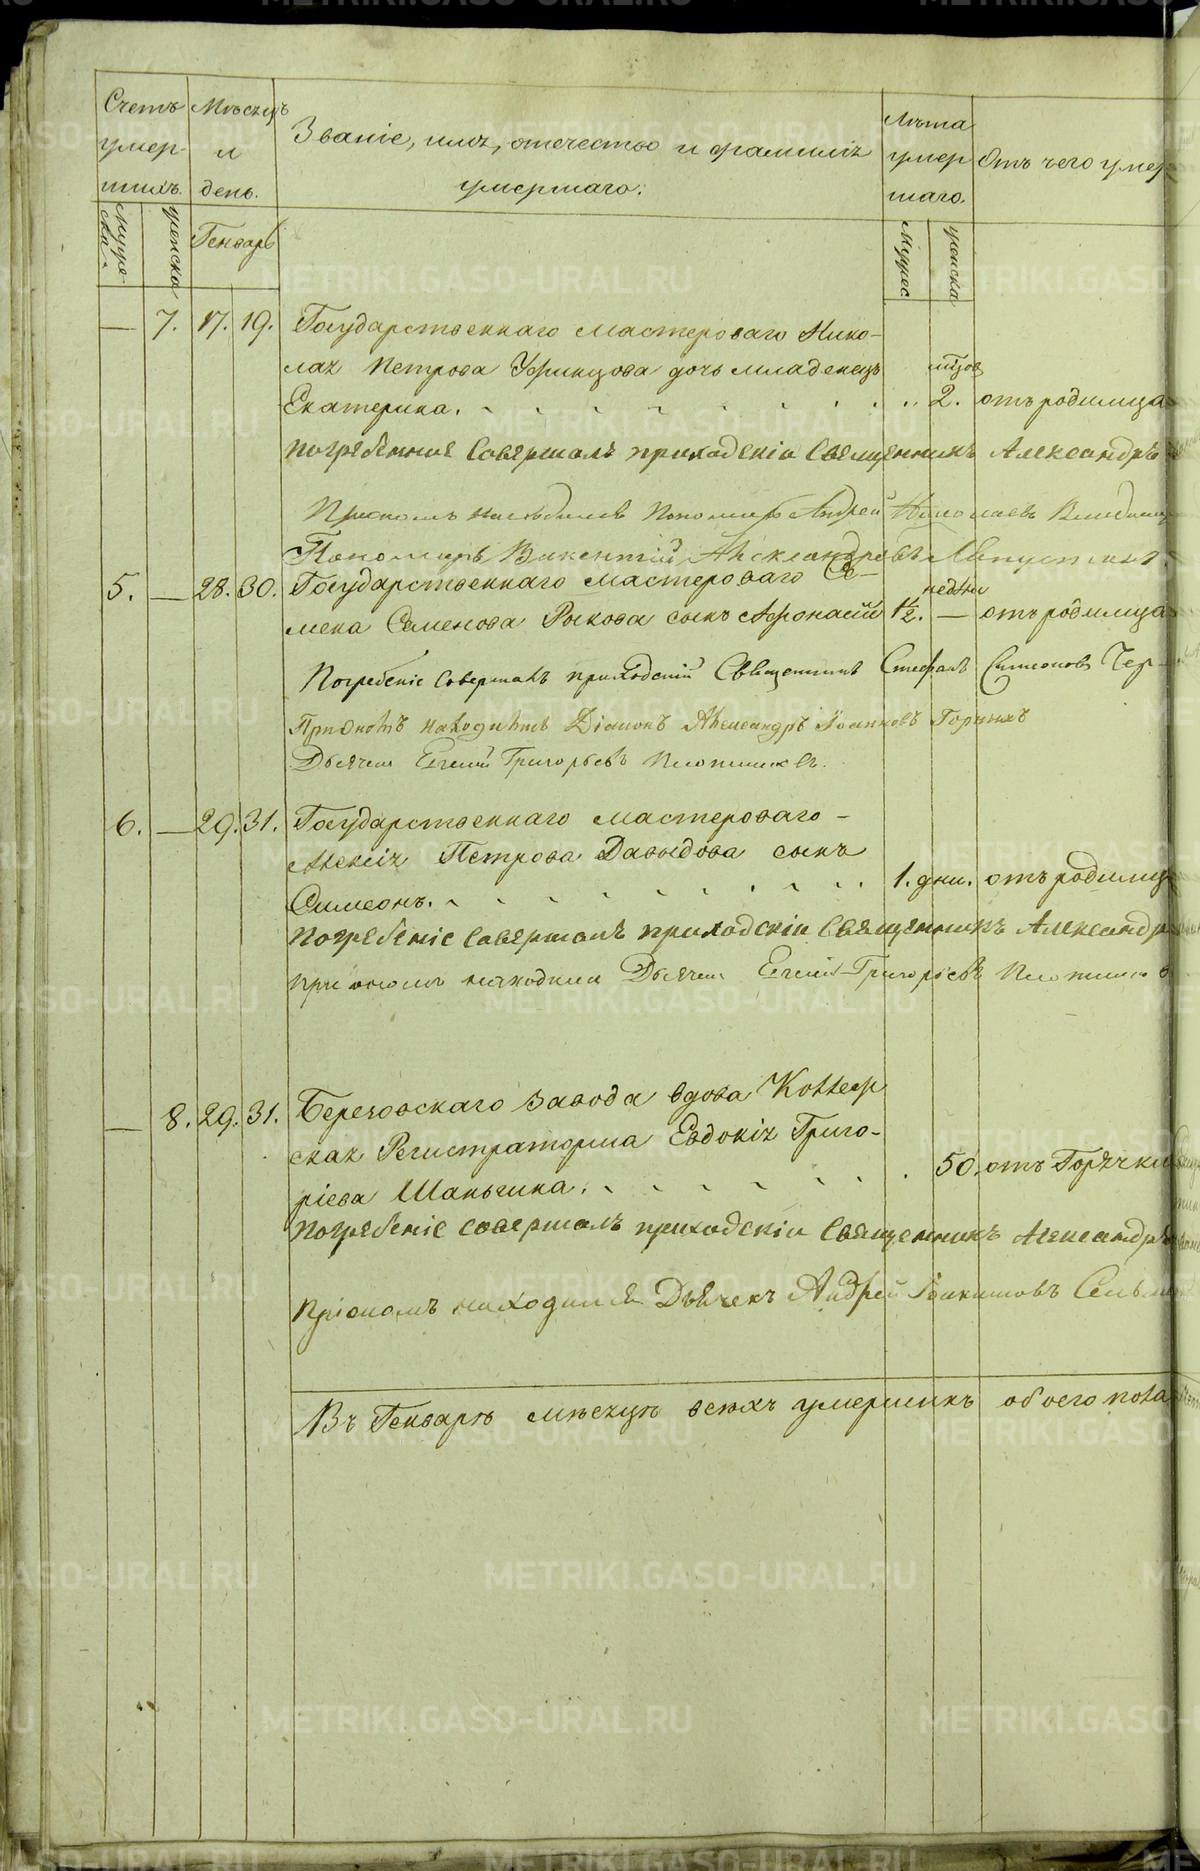 Счетъ умер- шихъ.
Мѣсяцъ и день.
Званіе, имя, отечество и фамилія умершаго.
Лѣта умер шаго.
Отъ чего умер
Мужес ка.
женска
Генварь
Мужес
женска
— 7. 17. 19. Государственнаго мастероваго Нико-
лая Петрова Уфинцова дочь младенецъ
Екатерина. мѣсяцов 2. отъ родимца
Погребеніе Совершалъ приходскій Священникъ Александръ
При семъ находился Пономарь Андрей Николаевъ
Пономарь Викентій Александровъ
5. — 28. 30. Государственнаго мастероваго Се-
мена Семенова Рыкова сынъ Афонасій недѣли 1½. — отъ родимца
Погребеніе Совершалъ приходскій Священникъ Стефанъ Симеоновъ Чер-
При ономъ находились Діаконъ Александръ Іоанновъ Горныхъ
Дьячекъ Евгеній Григорьевъ Плотниковъ.
6. — 29. 31. Государственнаго мастероваго –
Алексія Петрова Давыдова сынъ
Симеонъ. 1. дни. отъ родимц
Погребеніе Совершалъ приходскій Священникъ Александръ
При ономъ находился Дьячекъ Евгеній Григорьевъ Плотников
— 8. 29. 31. Березовскаго завода вдова Коллеж
ская Регистраторша Евдокія Григо-
ріева Шаньгина. 50. отъ Горячки
Погребеніе совершалъ приходскій Священникъ Александръ
При ономъ находился Дьячекъ Андрей Іоакимовъ
Въ Генварѣ мѣсяцѣ всѣхъ умершихъ обоего пола
METRIKI.GASO-URAL.RU